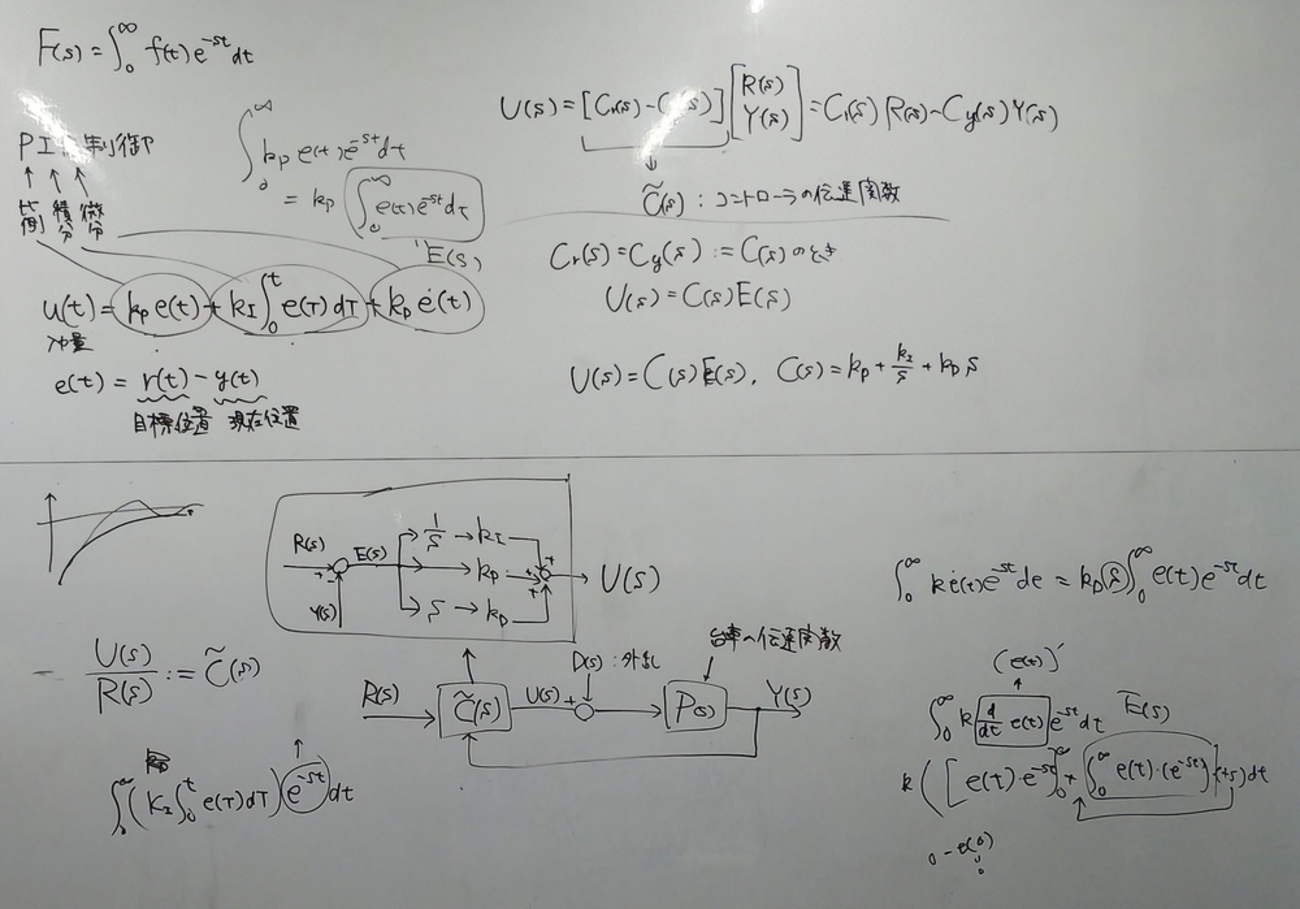 F(s) = ∫₀^∞ f(t) e^{-st} dt
PI 制御
比例 積分 微分
∫₀^∞ kp e(t) e^{-st} dt
= kp ∫₀^∞ e(t) e^{-st} dτ
E(s)
u(t) = kp e(t) + kI ∫₀^t e(τ) dτ + kD ė(t)
e(t) = r(t) - y(t)
目標位置 現在位置
U(s) = [Cr(s) - C (s)] [R(s) Y(s)] = Cr(s) R(s) - Cy(s) Y(s)
C̃(s) : コントローラの伝達関数
Cr(s) = Cy(s) := C(s) のとき
U(s) = C(s) E(s)
U(s) = C(s) E(s), C(s) = kp + kI/s + kD s
R(s) + - E(s) 1/s → kI +
Y(s) kp + U(s)
s → kD +
U(s)/R(s) := C̃(s)
R(s) C̃(s) U(s) + D(s) : 外乱 P(s) Y(s)
台車の伝達関数
∫₀^∞ (KI ∫₀^t e(τ) dτ) e^{-st} dt
∫₀^∞ k ė(t) e^{-st} de = kD (s) ∫₀^∞ e(t) e^{-st} dt
(e(t))′
∫₀^∞ k d/dt e(t) e^{-st} dt E(s)
k ( [e(t)·e^{-st}]₀^∞ + ∫₀^∞ e(t)·(e^{-st}) (+s) dt
0 - e(0)
0